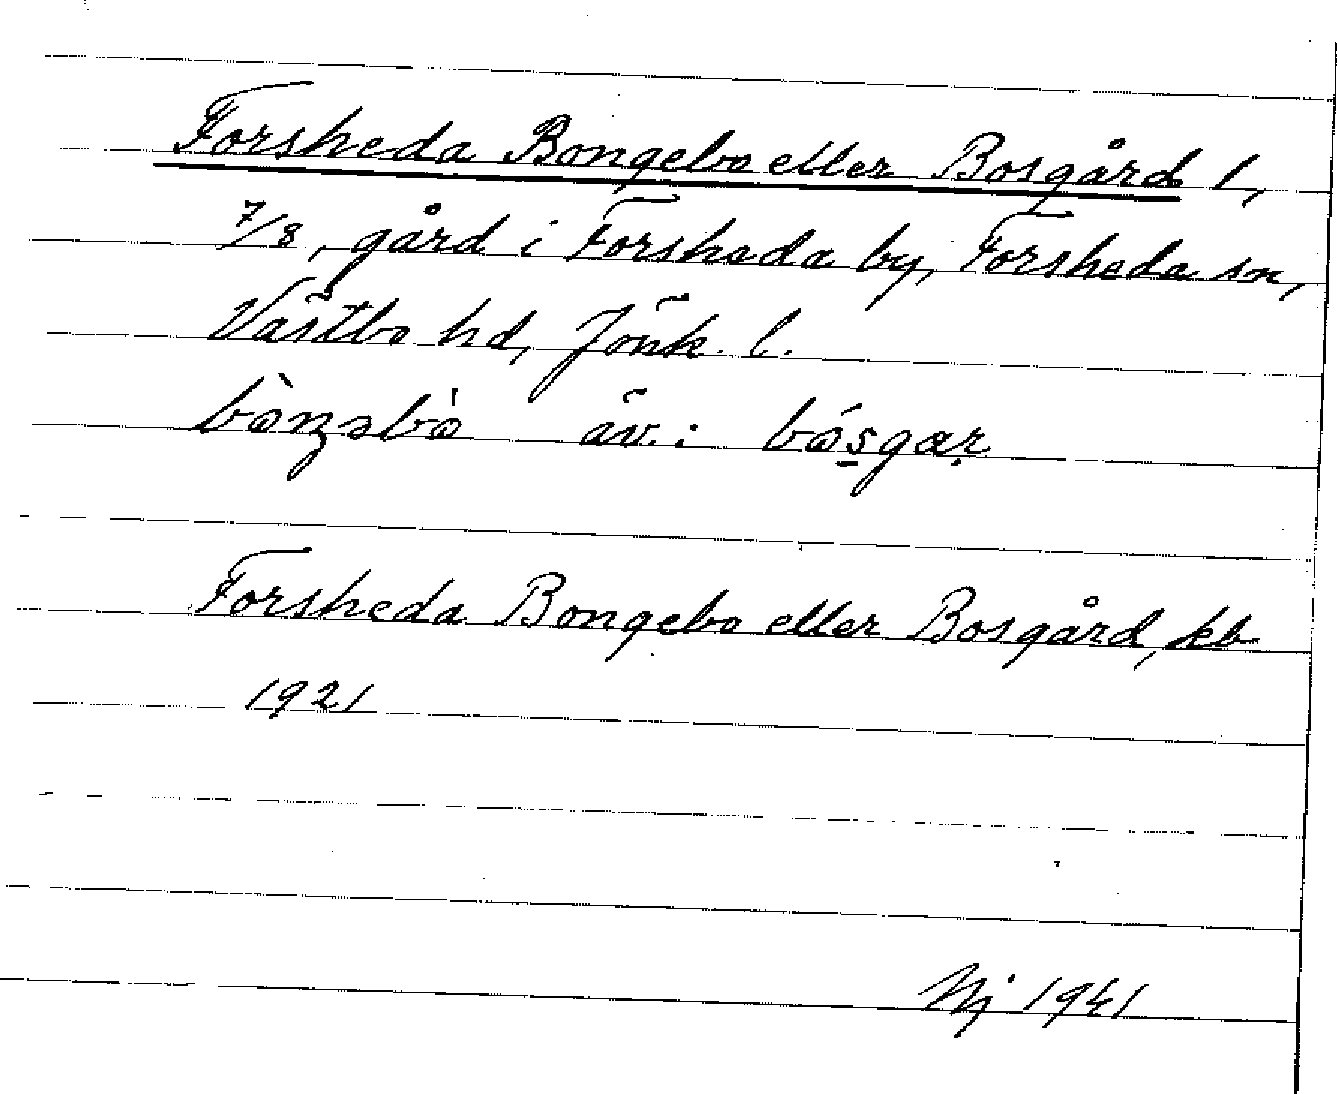 Forsheda Bongebo eller Bosgård 1,
7/8, gård i Forsheda by, Forsheda sn,
Västbo hd, Jönk. l.
äv.:
Forsheda Bongebo eller Bosgård, kb
1921
Nj 1941